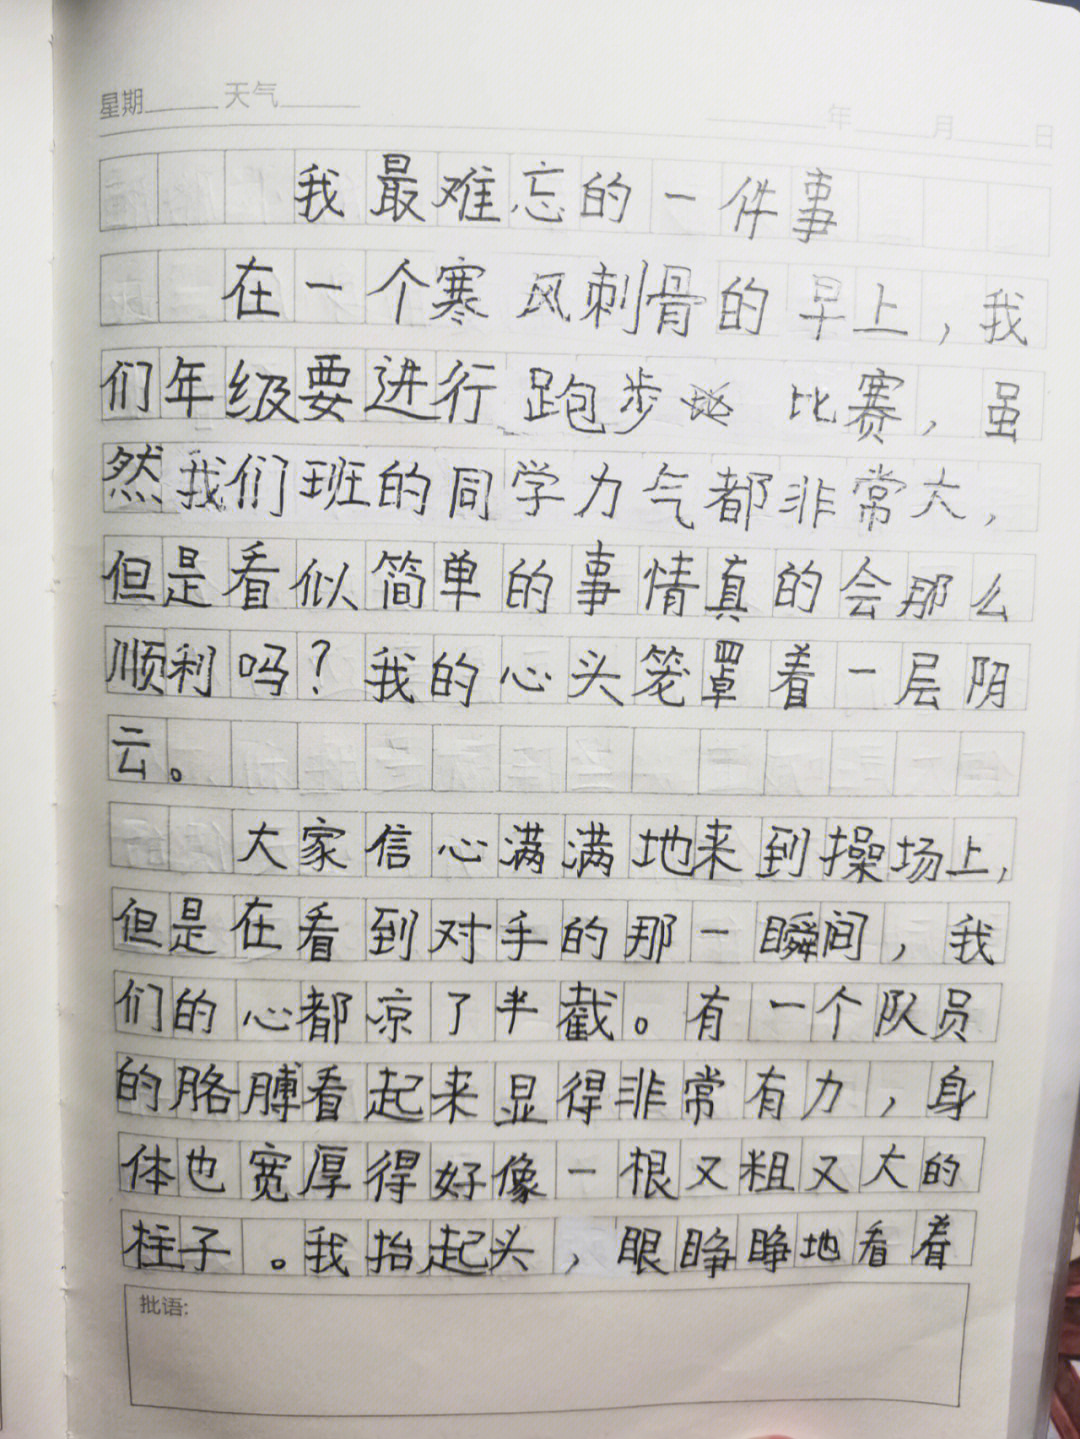 星期 天气 年 月 日
我最难忘的一件事
在一个寒风刺骨的早上，我
们年级要进行跑步比赛，虽
然我们班的同学力气都非常大，
但是看似简单的事情真的会那么
顺利吗？我的心头笼罩着一层阴
云。
大家信心满满地来到操场上，
但是在看到对手的那一瞬间，我
们的心都凉了半截。有一个队员
的胳膊看起来显得非常有力，身
体也宽厚得好像一根又粗又大的
柱子。我抬起头，眼睁睁地看着
批语: